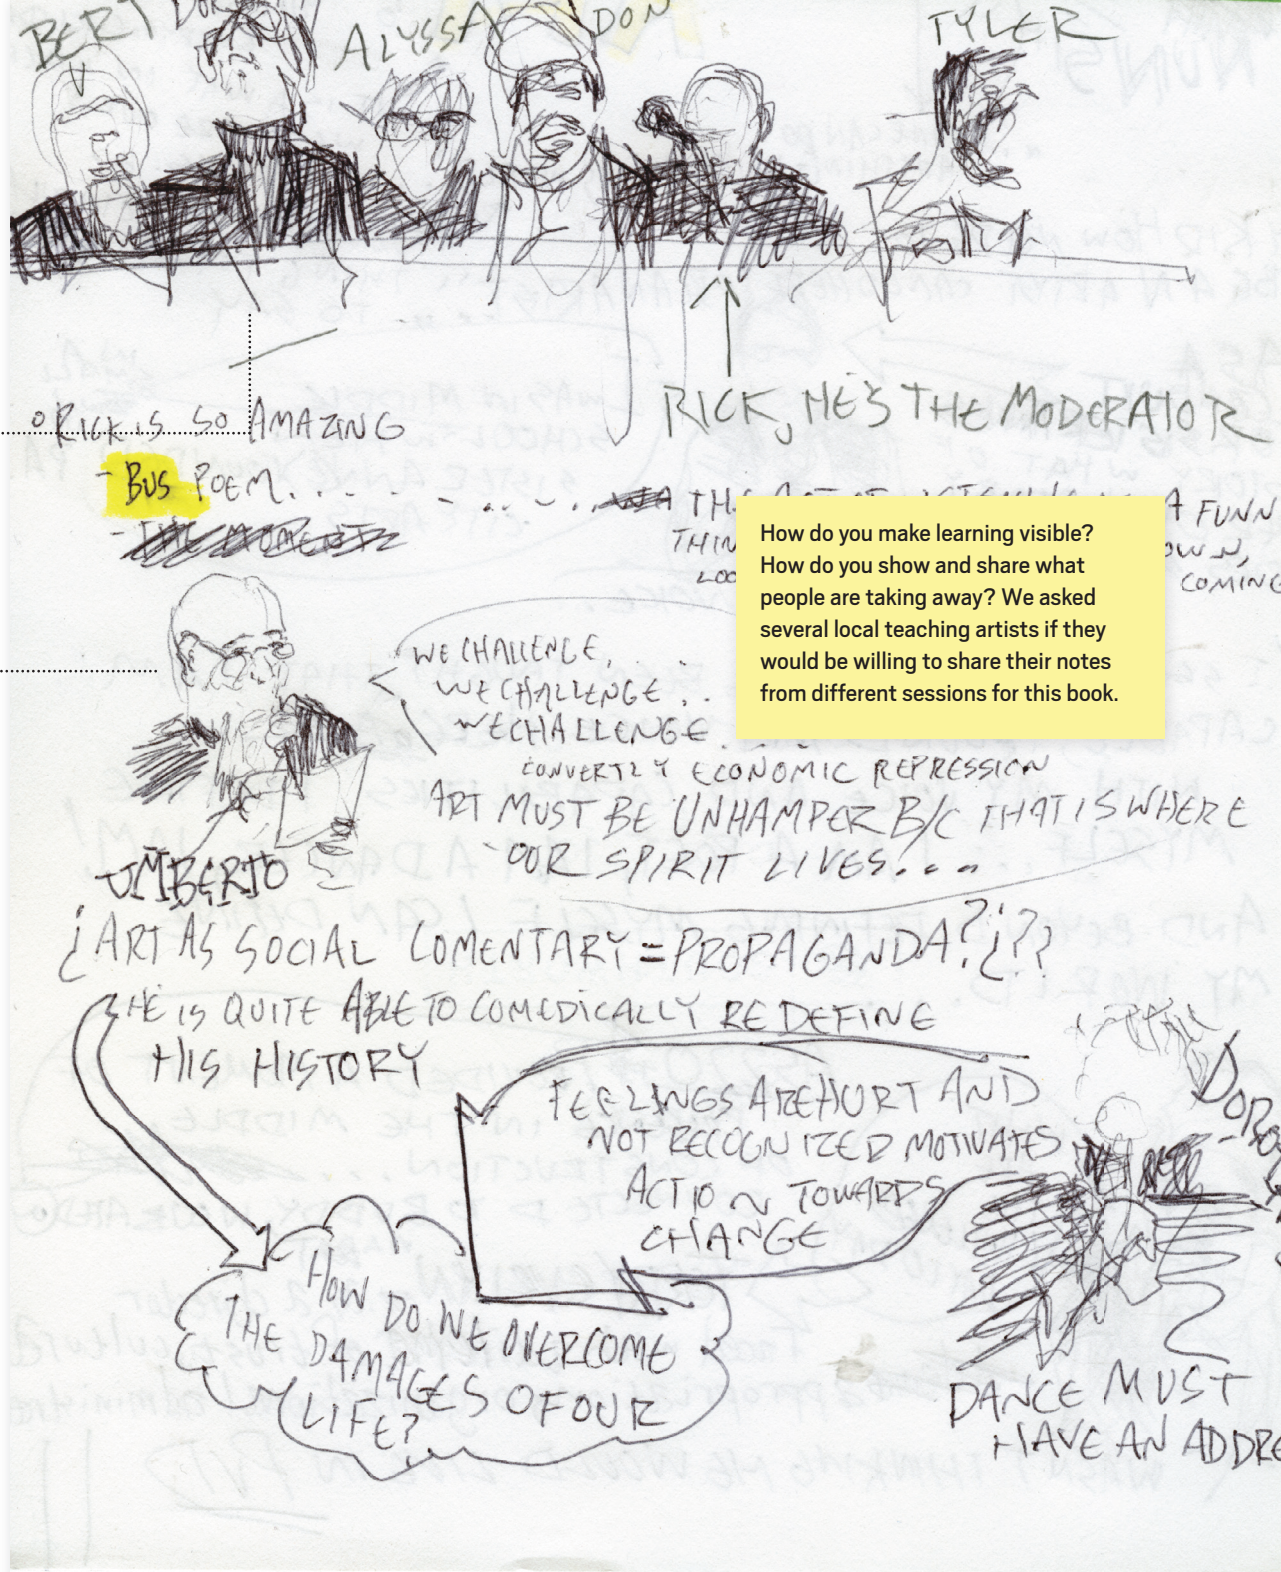 BERT
ALYSSA
DON
TYLER
RICK, HE'S THE MODERATOR
RICK IS SO AMAZING
- BUS POEM
A FUNN
THIN
OWN,
LOO
COMING
How do you make learning visible?
How do you show and share what
people are taking away? We asked
several local teaching artists if they
would be willing to share their notes
from different sessions for this book.
WE CHALLENGE, . .
WE CHALLENGE . .
WE CHALLENGE . . . .
CONVERTLY ECONOMIC REPRESSION
ART MUST BE UNHAMPER B/C THAT IS WHERE
OUR SPIRIT LIVES....
UMBERTO
¿ART AS SOCIAL COMENTARY = PROPAGANDA?¿??
HE IS QUITE ABLE TO COMEDICALLY REDEFINE
HIS HISTORY
FEELINGS ARE HURT AND
NOT RECOGNIZED MOTIVATES
ACTION TOWARDS
CHANGE
HOW DO WE OVERCOME
THE DAMAGES OF OUR
LIFE?
DANCE MUST
HAVE AN ADDRE